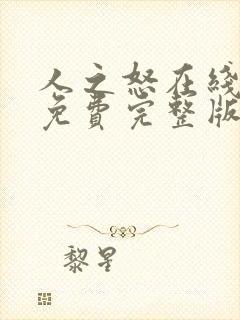 人之怒在线
免費完整版
黎星